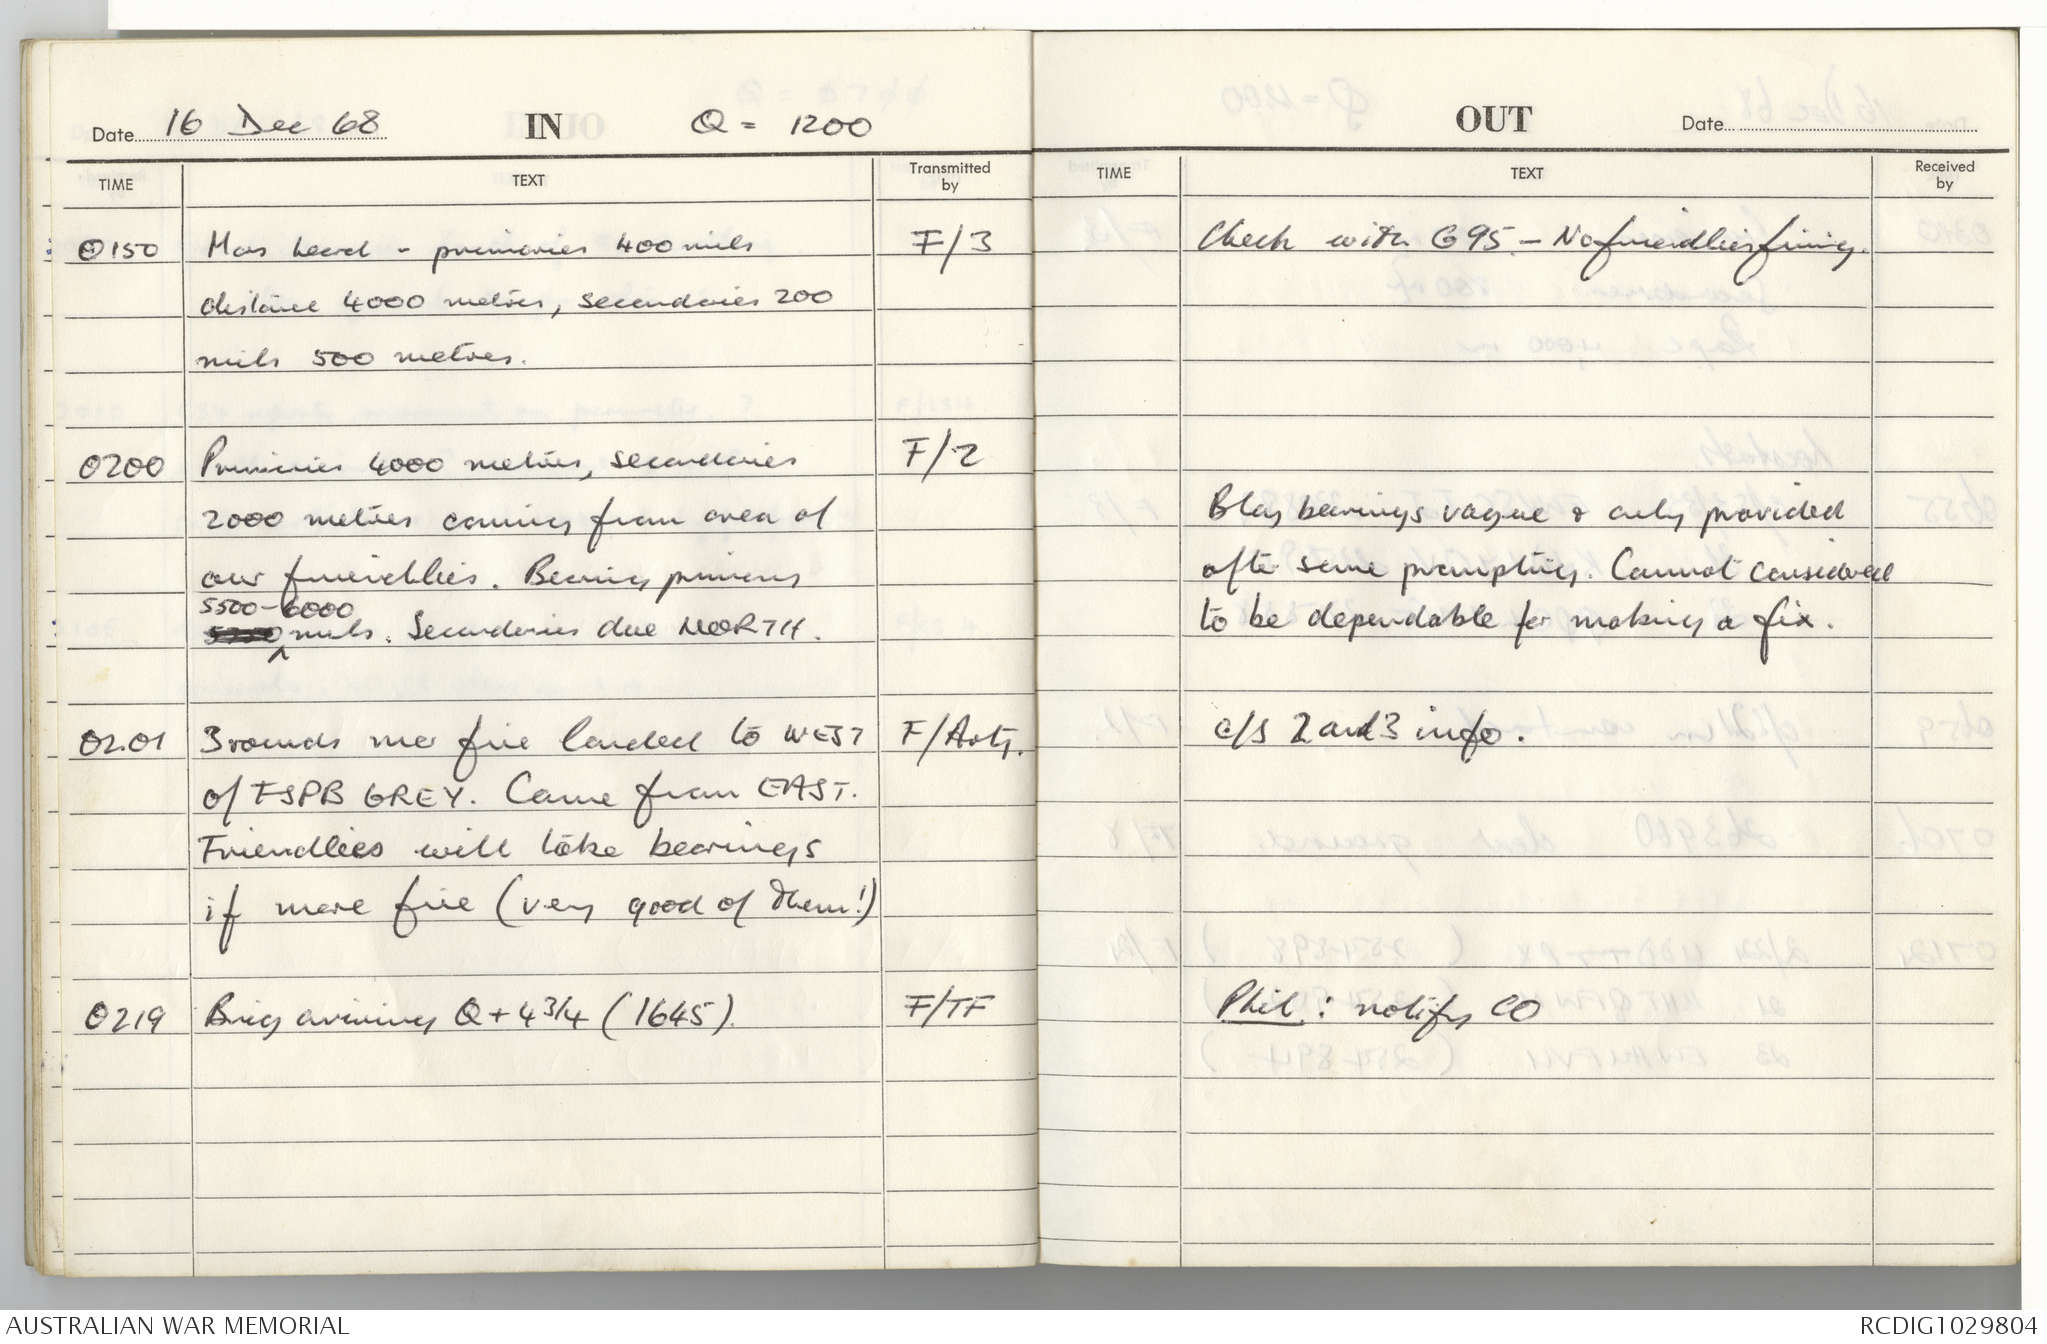 Date 16 Dec 68 IN Q = 1200
TIME TEXT Transmitted by
0150 Mors heard - primaries 400 mils F/3
distance 4000 metres, secondaries 200
mils 500 metres.
0200 Primaries 4000 metres, secondaries F/2
2000 metres coming from area of
our friendlies. Bearing primary
5500-6000
mils. Secondaries due NORTH.
0201 3 rounds mor fire landed to WEST F/Arty.
of FSPB GREY. Came from EAST.
Friendlies will take bearings
if more fire (very good of them!)
0219 Brig arriving Q+4 3/4 (1645). F/TF
OUT Date
TIME TEXT Received by
Check with G95. - No friendlies firing.
Blag bearings vague & only provided
after some prompting. Cannot considered
to be dependable for making a fix.
c/s 2 and 3 info.
Phil: notify CO
AUSTRALIAN WAR MEMORIAL
RCDIG1029804